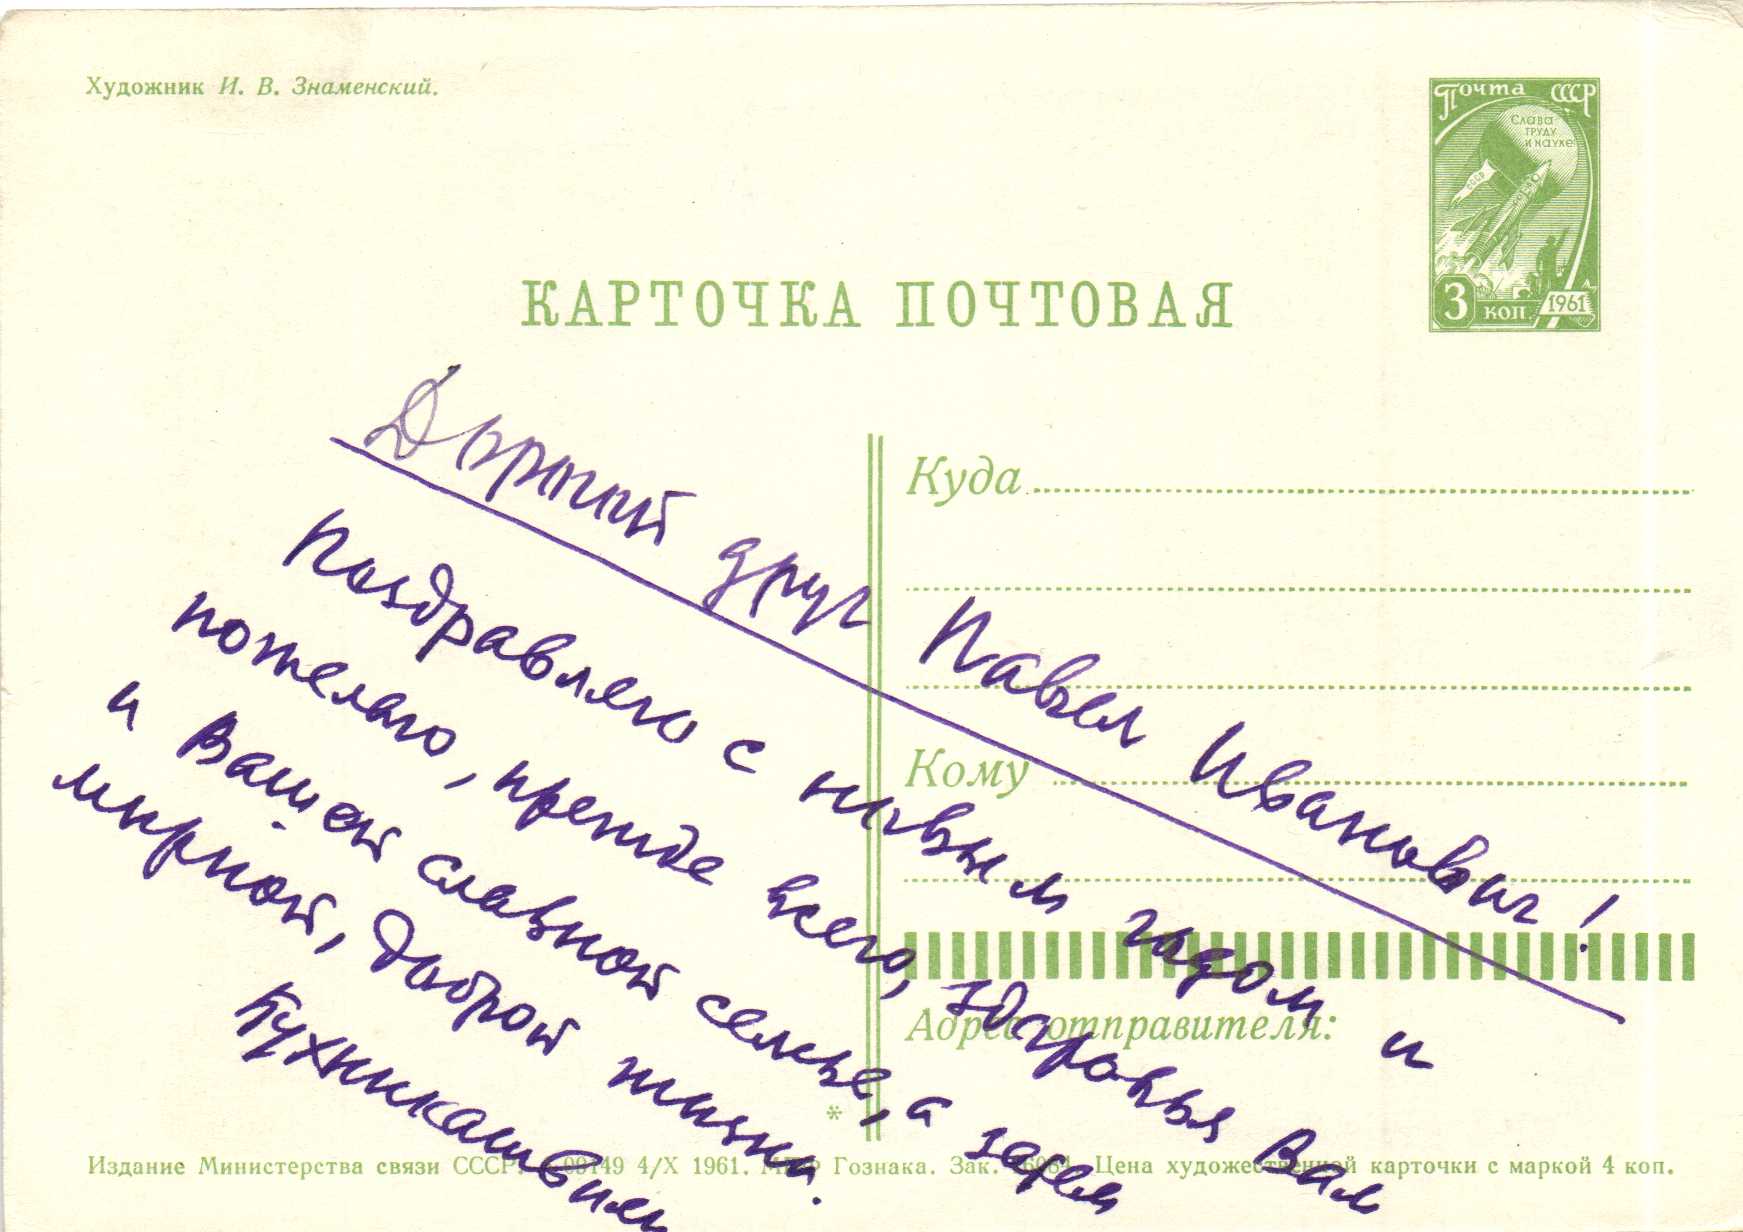 Художник И. В. Знаменский.
Почта СССР
Слава
труду
и науке
СССР
3 коп. 1961
КАРТОЧКА ПОЧТОВАЯ
Куда
Кому
Адрес отправителя:
Дорогой друг Павел Иванович!
Поздравляю с новым годом и
пожелаю, прежде всего, здоровья Вам
и Вашей славной семье, а затем
мирной, доброй жизни.
*
Издание Министерства связи СССР. 4/X 1961. Гознака. Зак. Цена художественной карточки с маркой 4 коп.